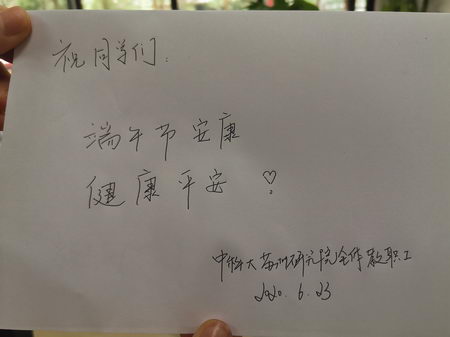 祝同学们:
端午节安康
健康平安 ♡
中科大苏州研究院全体教职工
2020.6.23